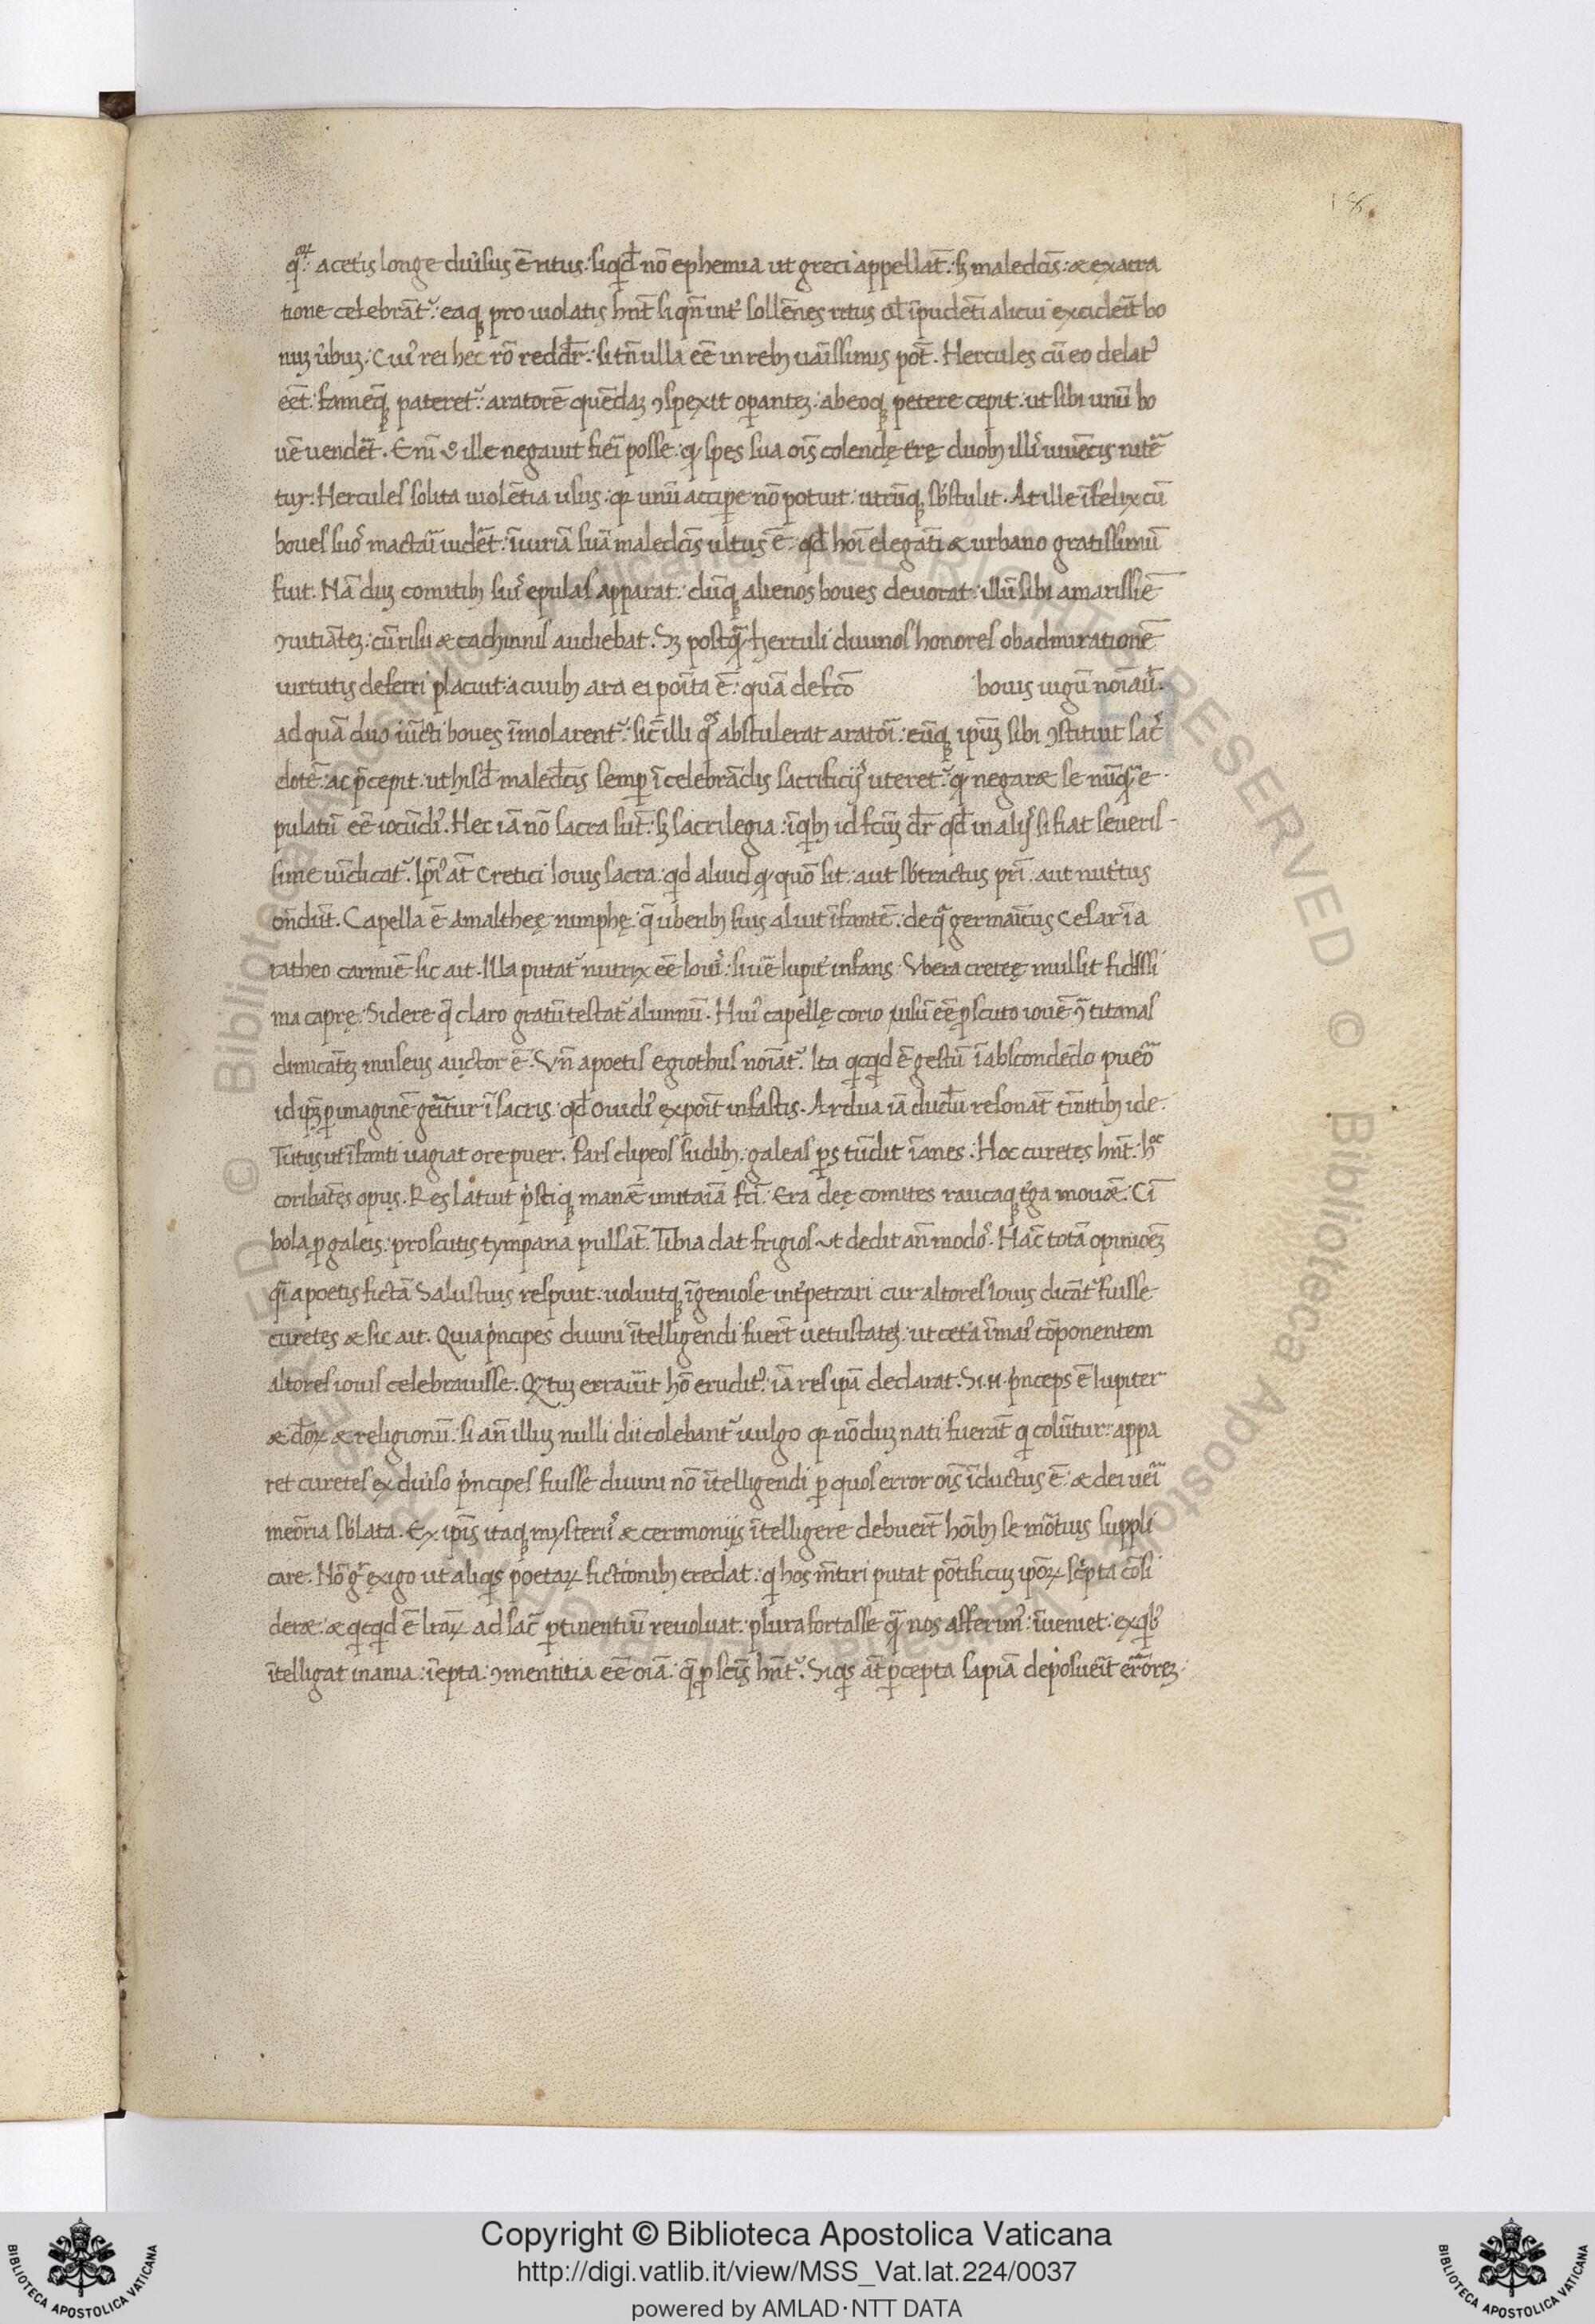 18
qͦꝝ. a cet̾is longe diu̾sus ē ritus. siqd̄ nō ephemia ut greci appellāt. sꝫ maledc̄is: ⁊ exacra
tione celebrāt᷑. eaqꝫ pro uiolatis hn̄t siqn̄ int̾ sollēnes ritus ul̄ īpudēti alicui exciderīt bo
nuꝫ u̾buꝫ. Cui᷒ rei hec rō redd̄r. si tn̄ ulla eē in rebꝫ uaīssimis pōt. Hercules cū eo delat᷒
eēt. famēqꝫ pateret᷑. aratorē quēdaꝫ ꝯspexit oꝑanteꝫ. ab eoqꝫ petere cepit. ut sibi unū bo
uē vendēt. Enī ille negauit fieī posse. qꝫ spes sua oīs colendę t̾rę duobꝫ illi᷒ iuuēcis nite᷑
tur. Hercules solita uiolētia usus. qꝝ unū acciꝑe nō potuit. utrūqꝫ sb̄stulit. At ille īfelix cū
boues suos mactaī uidēt. iniuriā suā maledc̄is ultus ē. qd̄ hoī elegāti ⁊ urbano gratissimū
fuit. Nā duꝫ comitibꝫ suis epulas apparat. dūqꝫ alienos boues deuorat. illū sibi amarissīe
ꝯuitiāteꝫ. cū risu ⁊ cachinnis audiebat. Sꝫ postqᷓ herculi diuinos honores ob admirationē
uirtutis deferri placuit. a ciuibꝫ ara ei poīta ē. quā de fc̄o bouis iugū noiāu̅.
ad quā duo iūcti boues īmolarent᷑. sic̄ illi qͦs abstulerat aratoī. eūqꝫ ipsuꝫ sibi ꝯstituit sac̾
dotē. ac p̄cepit. ut hisd̄ maledc̄is semꝑ ī celebrādis sacrificijs uteret᷑. qꝫ negaret se nūqᷓ e
pulatū eē iocūdi᷒. Hec iā nō sacra sūt. sꝫ sacrilegia. īqibꝫ id sc̄uꝫ dr̄ qd̄ in alijs si fiat seueris
sime uīdicat᷑. Ipsi᷒ at̄ Cretici Iouis sacra. qd aliud qꝫ quō sit. aut sb̄tractus pr̄i. aut nut̾tus
ondūt. Capella ē Amaltheę nimphę. q̄ uberibꝫ suis aluit īfantē. de qᷓ germaīcus Cesar ī a
ratheo carmīe sic ait. Illa putat᷑ nutrix eē Ioui᷒. si uē Iupit̾ infans. Vbera creteę mulsit fidissi
ma caprę. Sidere q̄ claro gratū testat᷑ alumnū. Hui᷒ capellę corio usū eē ꝓ scuto iouē ꝯ titanas
dimicāteꝫ museus auctor ē. Vn̄ a poetis egiothus noīat᷑. Ita qicqid ē gestū ī abscondēdo pueō
id ipꝫ ꝑ imaginē geritur ī sacris. qd̄ ouidi᷒ expoīt in fastis. Ardua iā dudū resonāt tīnitibꝫ ide.
Tutus ut īfanti uagiat ore puer. Pars clipeos sudibꝫ. galeas ꝑs tūdit īanes. Hoc curetes hn̄t. hͦc
coribātes opus. Res latuit p̾sciqꝫ manēt imitaīa fc̄i. Era deę comites raucaqꝫ t̾ga mouēt. Cī
bola ꝓ galeis. pro scutis tympana pulsāt. Tibia dat frigios ut dedit an̄ modos. Hāc totā opinioēꝫ
qͣī a poetis fictā Salustius respuit. uoluitqꝫ īgeniose int̾petrari cur altores Iouis dicāt᷑ fuisse
curetes ⁊ sic ait. Quia p̾ncipes diuini ītelligendi fuer̄t uetustateꝫ. ut cet̾a īmai᷒ cōponentem
altores iouis celebrauisse. Qᷓtuꝫ errauīt hō erudit᷒. iā res ipā declarat. Si .n. p̾nceps ē Iupiter
⁊ deoꝝ ⁊ religionū. si an̄ illuꝫ nulli dii colebant᷑ uulgo qꝝ nōduꝫ nati fuerāt qi colūtur. appa
ret curetes ex diu̾so p̾ncipes fuisse diuini nō ītelligendi ꝑ quos error oīs īductus ē. ⁊ dei ueī
meōria sb̄lata. Ex ipīs itaqꝫ mysterijs ⁊ cerimonijs ītelligere debuer̄t hoībꝫ se mōtuis suppli
care. Nō gͦ exigo ut aliqis poetaꝝ fictionibꝫ credat. qi hos m̄tiri putat pōtificuꝫ ipōꝝ sc̾pta cōsi
deret. ⁊ qicqid ē lrāꝝ ad sac̄ ꝑtinentiū reuoluat. plura fortasse qᷓ nos afferim᷒. īueniet. ex qib᷒
ītelligat inania. īepta. ꝯmentitia eē oīa. q̄ ꝓ sc̄is hn̄t᷑. Siqis at̄ ꝑcepta sapiā deposueīt errōreꝫ.
Copyright © Biblioteca Apostolica Vaticana
http://digi.vatlib.it/view/MSS_Vat.lat.224/0037
powered by AMLAD·NTT DATA